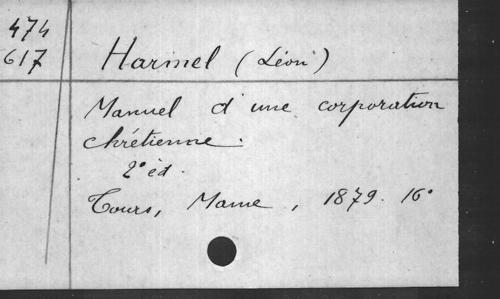 474
617
Harmel (Léon)
Manuel d'une corporation
chrétienne.
2° éd.
Tours, Mame, 1879. 16°